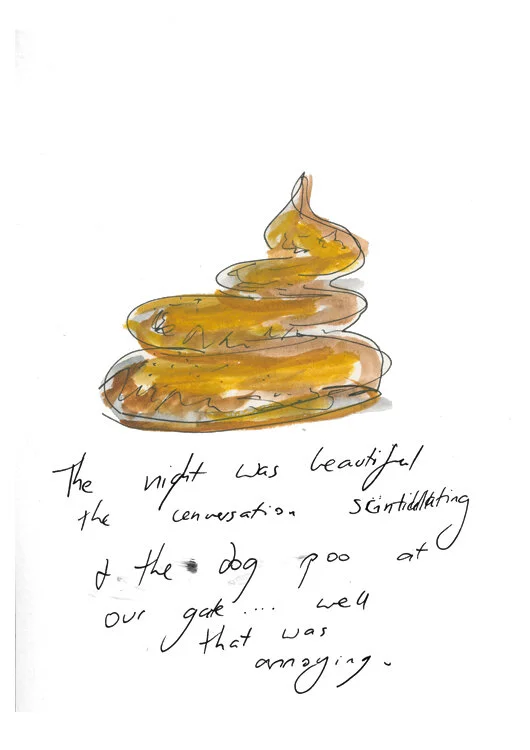 The night was beautiful
the conversation scintillating
& the dog poo at
our gate.... well
that was
annoying.